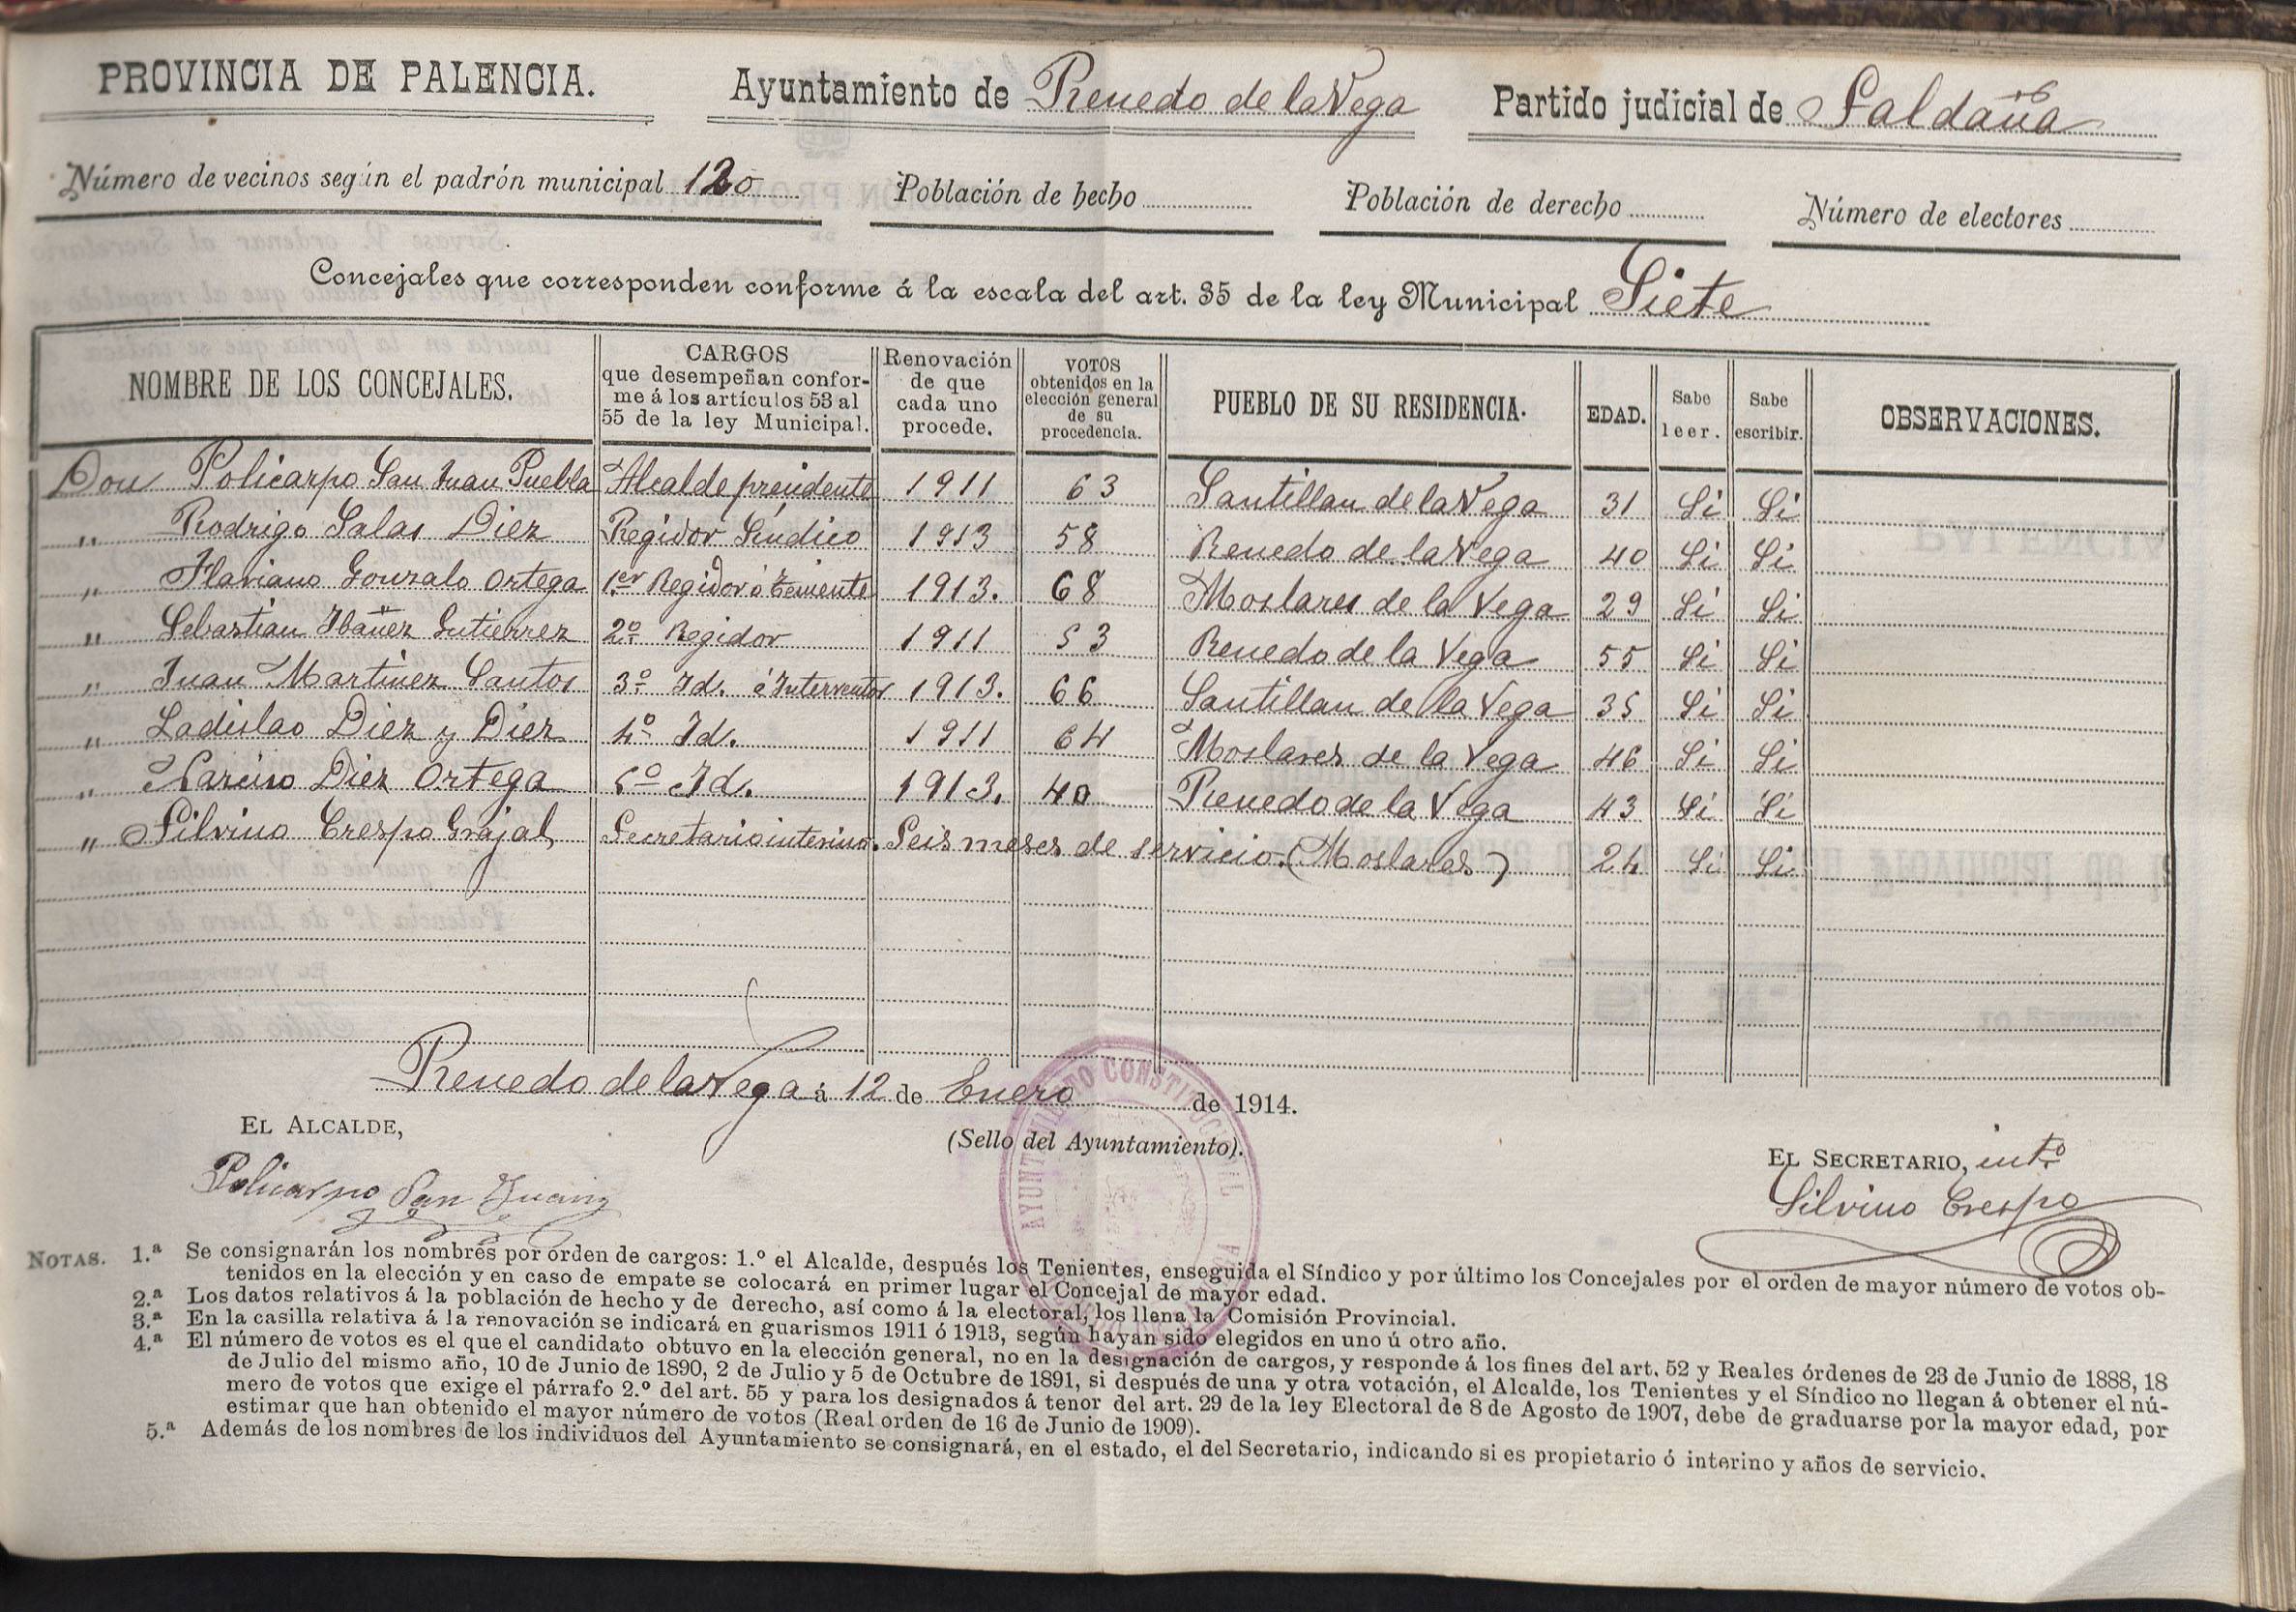 PROVINCIA DE PALENCIA. Ayuntamiento de Renedo de la Vega Partido judicial de Saldaña
Número de vecinos según el padrón municipal 120 Población de hecho Población de derecho Número de electores
Concejales que corresponden conforme á la escala del art. 35 de la ley Municipal Siete
NOMBRE DE LOS CONCEJALES. CARGOS que desempeñan conforme á los artículos 53 al 55 de la ley Municipal. Renovación de que cada uno procede. VOTOS obtenidos en la elección general de su procedencia. PUEBLO DE SU RESIDENCIA. EDAD. Sabe leer. Sabe escribir. OBSERVACIONES.
Don Policarpo San Juan Puebla Alcalde presidente 1911 63 Santillan de la Vega 31 Si Si
" Rodrigo Salas Diez Regidor Síndico 1913 58 Renedo de la Vega 40 Si Si
" Flaviano Gonzalo Ortega 1.er Regidor ó Teniente 1913. 68 Moslares de la Vega 29 Si Si
" Sebastian Ibañez Gutierrez 2º Regidor 1911 53 Renedo de la Vega 55 Si Si
" Juan Martinez Santos 3º Id. é Interventor 1913. 66 Santillan de la Vega 35 Si Si
" Ladislao Diez y Diez 4º Id. 1911 64 Moslares de la Vega 46 Si Si
" Narciso Diez Ortega 5º Id. 1913. 40 Renedo de la Vega 43 Si Si
" Silvino Crespo Grajal Secretario interino. Seis meses de servicio. (Moslares) 24 Si Si
Renedo de la Vega á 12 de Enero de 1914.
EL ALCALDE,
(Sello del Ayuntamiento).
EL SECRETARIO, intº
Policarpo San Juan
Silvino Crespo
AYUNTAMIENTO CONSTITUCIONAL
NOTAS. 1.ª Se consignarán los nombres por orden de cargos: 1.º el Alcalde, después los Tenientes, enseguida el Síndico y por último los Concejales por el orden de mayor número de votos ob-
tenidos en la elección y en caso de empate se colocará en primer lugar el Concejal de mayor edad.
2.ª Los datos relativos á la población de hecho y de derecho, así como á la electoral, los llena la Comisión Provincial.
3.ª En la casilla relativa á la renovación se indicará en guarismos 1911 ó 1913, según hayan sido elegidos en uno ú otro año.
4.ª El número de votos es el que el candidato obtuvo en la elección general, no en la designación de cargos, y responde á los fines del art. 52 y Reales órdenes de 23 de Junio de 1888, 18
de Julio del mismo año, 10 de Junio de 1890, 2 de Julio y 5 de Octubre de 1891, si después de una y otra votación, el Alcalde, los Tenientes y el Síndico no llegan á obtener el nú-
mero de votos que exige el párrafo 2.º del art. 55 y para los designados á tenor del art. 29 de la ley Electoral de 8 de Agosto de 1907, debe de graduarse por la mayor edad, por
estimar que han obtenido el mayor número de votos (Real orden de 16 de Junio de 1909).
5.ª Además de los nombres de los individuos del Ayuntamiento se consignará, en el estado, el del Secretario, indicando si es propietario ó interino y años de servicio.